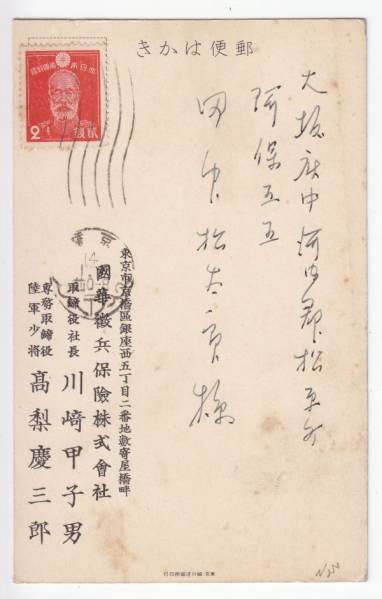 郵便はかき
大日本帝國郵便
2
貳錢
東京
14
大坂府中河内郡松原町
阿保五五
田中松太郎様
東京市京橋區銀座西五丁目二番地數寄屋橋畔
國華徴兵保險株式會社
取締役社長 川崎甲子男
專務取締役
陸軍少將 高梨慶三郎